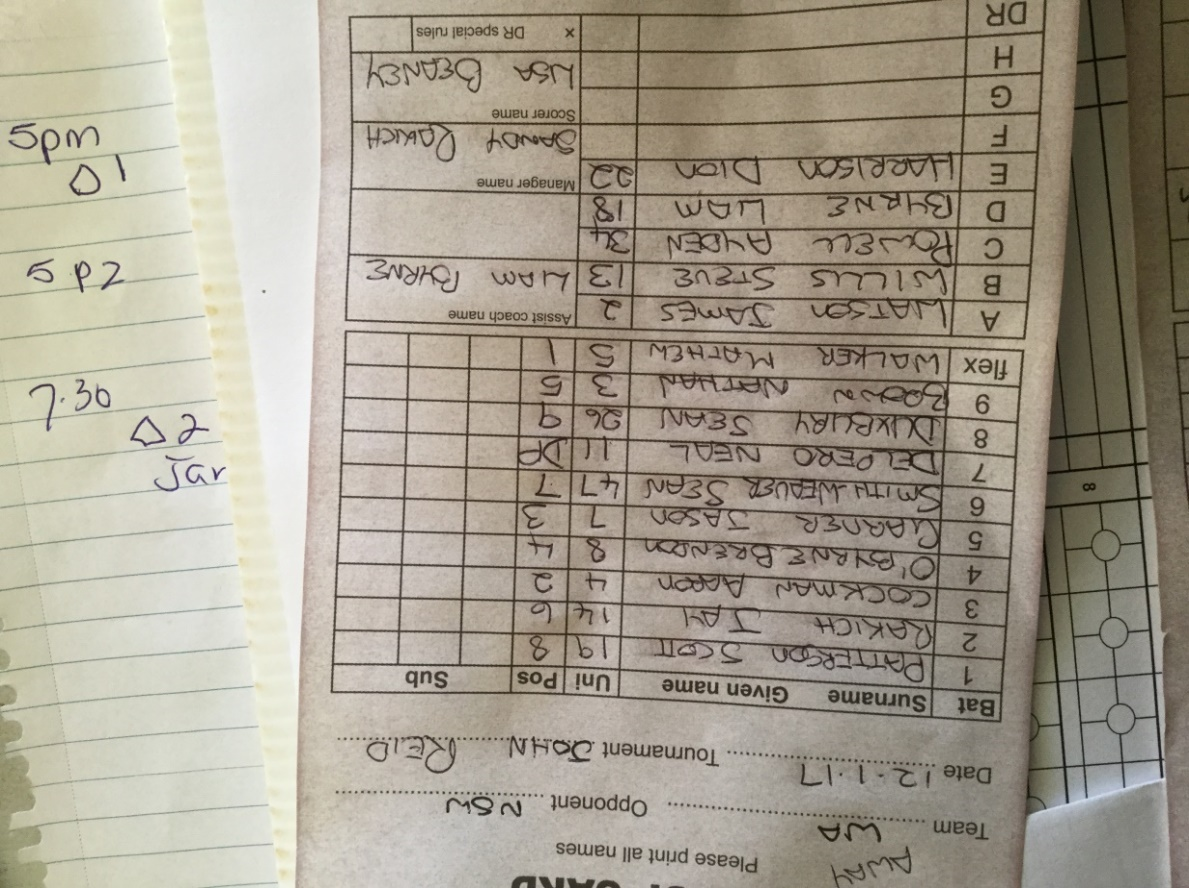 CARD
Please print all names
AWAY
Team WA Opponent NSW
Date 12.1.17 Tournament JOHN REID
Bat Surname Given name Uni Pos Sub
1 PATTERSON SCOTT 19 8
2 RAKICH JAY 14 6
3 COCKMAN AARON 4 2
4 O'BYRNE BRENDON 8 4
5 GARNER JASON 7 3
6 SMITH-WEAVER SEAN 47 7
7 DELPERO NEAL 11 DP
8 DUXBURY SEAN 26 9
9 BROWN NATHAN 3 5
flex WALKER MATHEW 5 1
A WATSON JAMES 2
B WILLS STEVE 13
C POWELL AYDEN 34
D BYRNE LIAM 18
E HARRISON DION 22
F
G
H
DR
Assist coach name
LIAM BYRNE
Manager name
SANDY RAKICH
Scorer name
LISA BEANEY
x DR special rules
5pm
D1
5 P2
7.30
D2
Jar
8